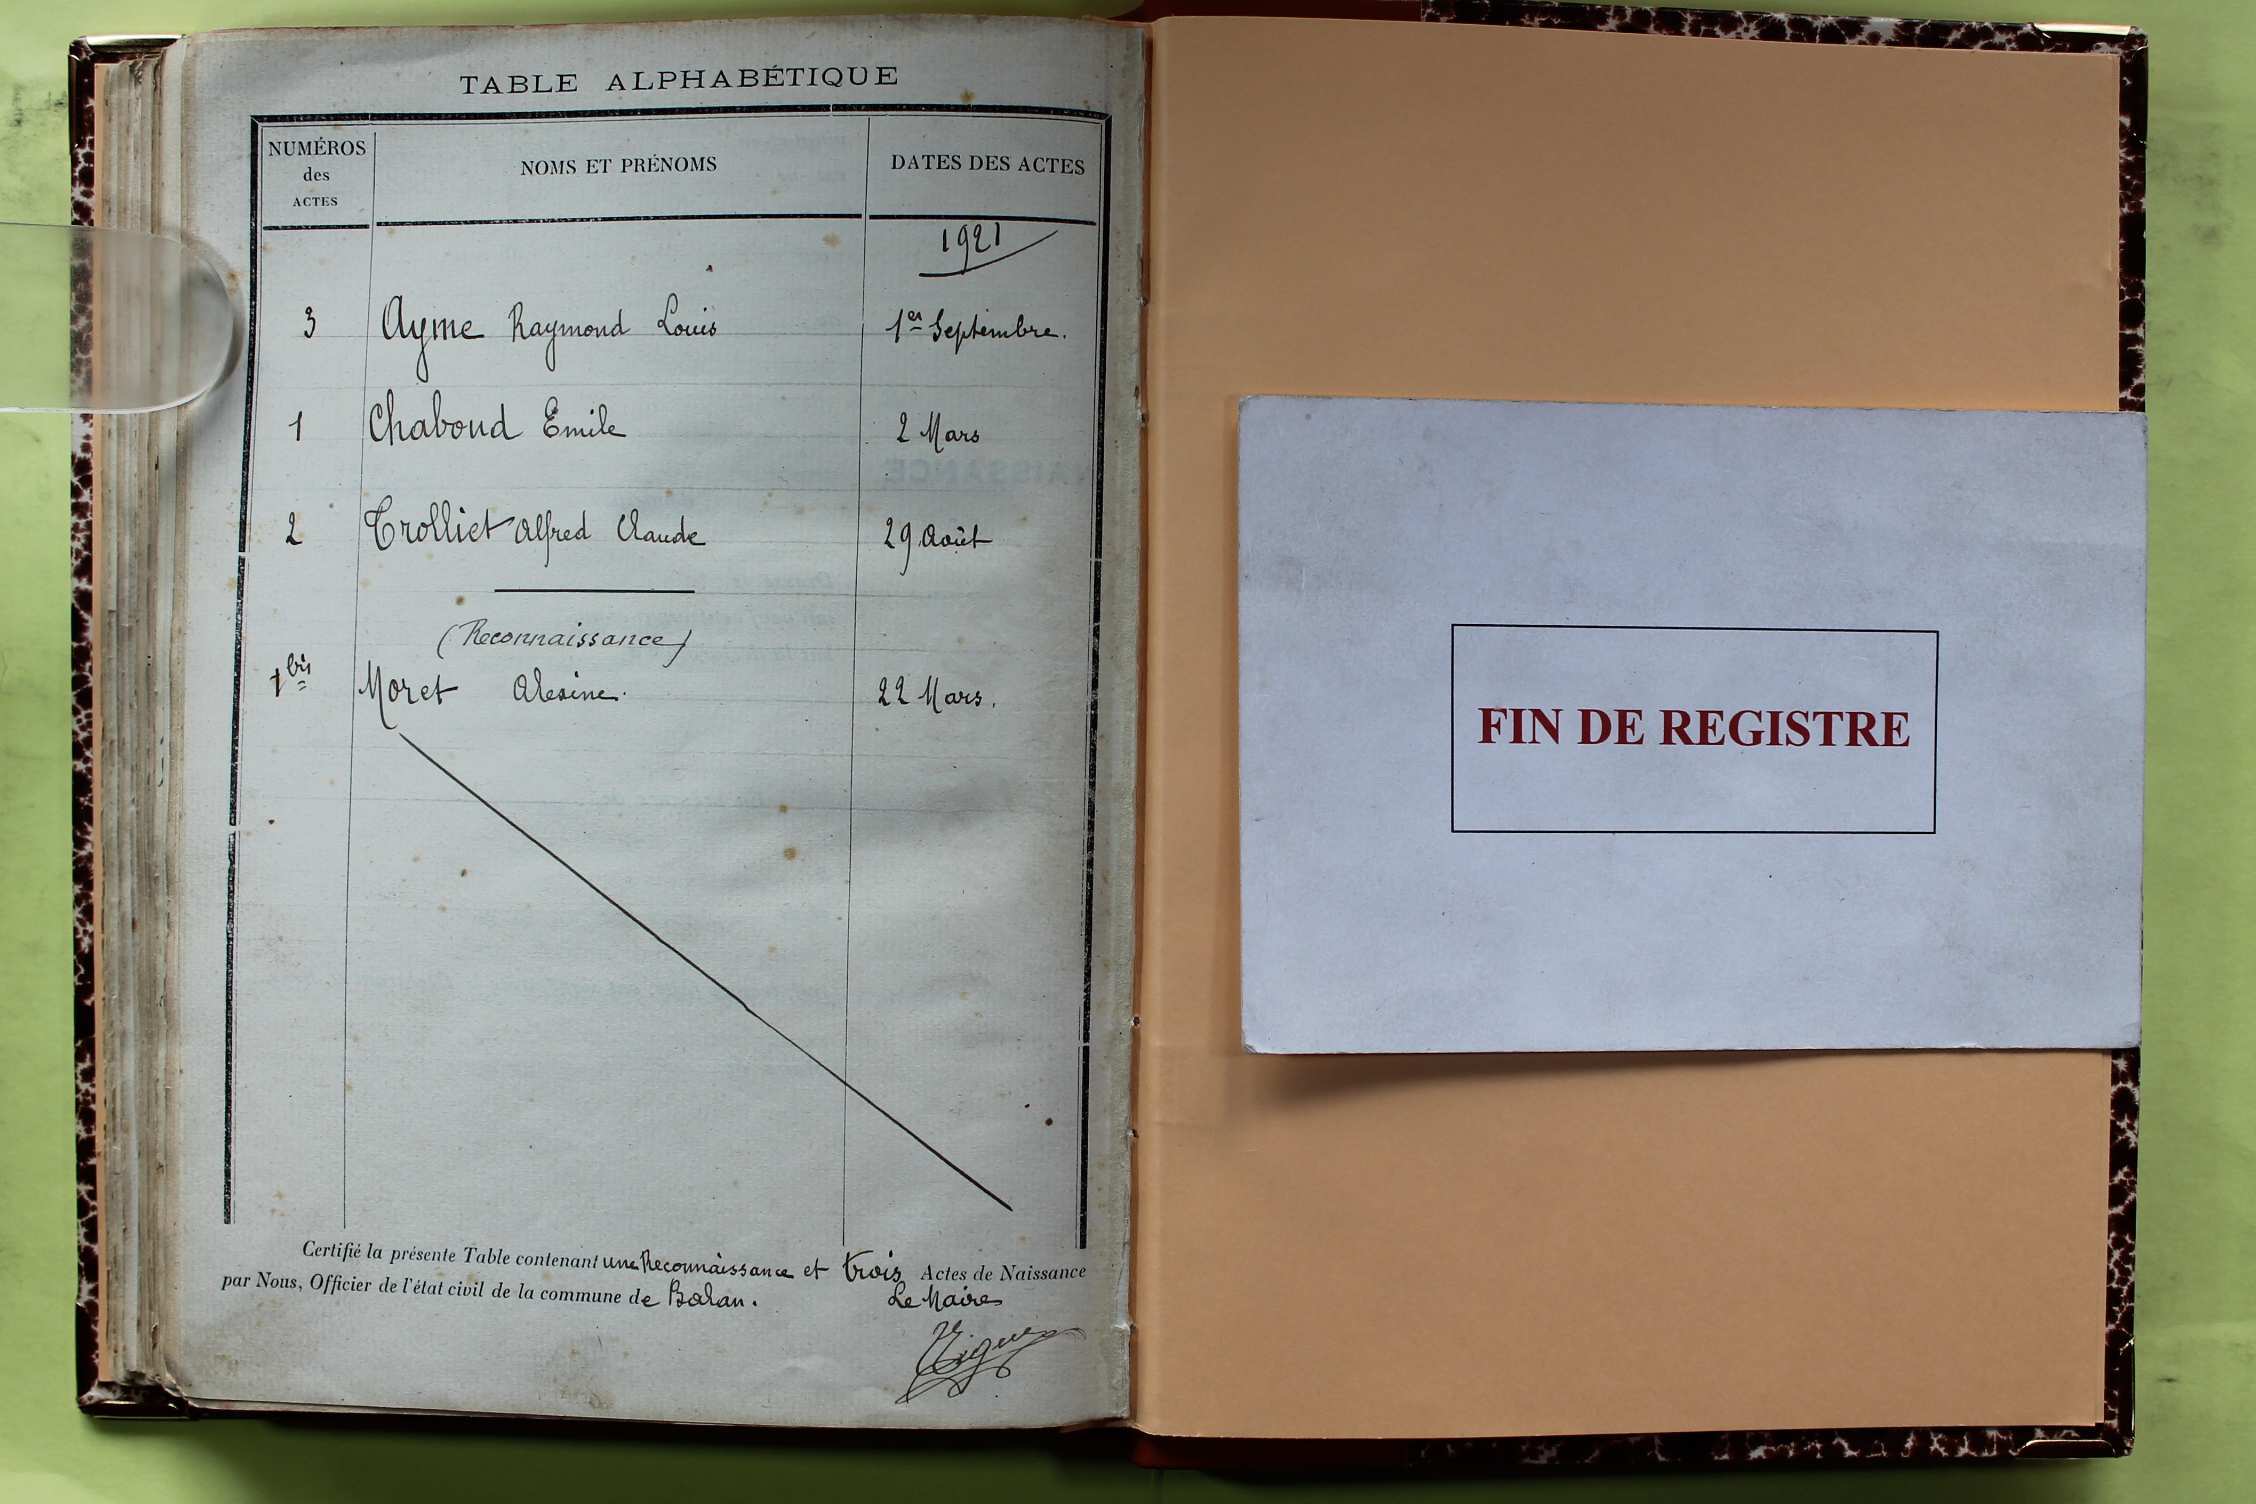 TABLE ALPHABÉTIQUE
NUMÉROS
des
ACTES
NOMS ET PRÉNOMS
DATES DES ACTES
1921
3 Ayme Raymond Louis 1er Septembre.
1 Chaboud Emile 2 Mars
2 Trolliet Alfred Claude 29 Août
(Reconnaissance)
1bis Moret Alexine. 22 Mars.
Certifié la présente Table contenant une Reconnaissance et trois Actes de Naissance
par Nous, Officier de l'état civil de la commune de Balan. Le Maire
FIN DE REGISTRE